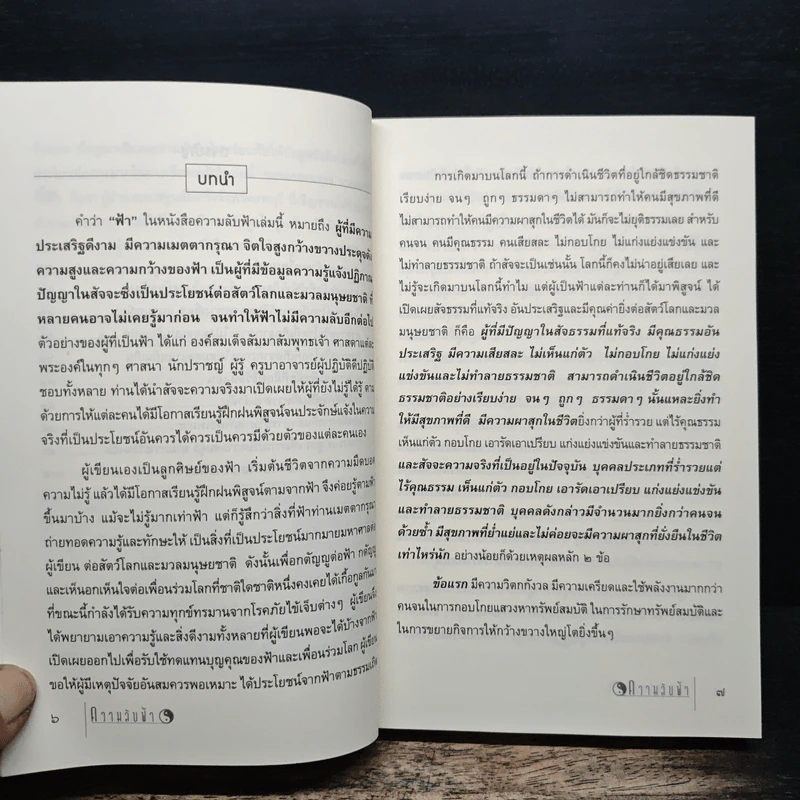 บทนำ
คำว่า “ฟ้า” ในหนังสือความลับฟ้าเล่มนี้ หมายถึง ผู้ที่มีความ
ประเสริฐดีงาม มีความเมตตากรุณา จิตใจสูงกว้างขวางประดุจดัง
ความสูงและความกว้างของฟ้า เป็นผู้ที่มีข้อมูลความรู้แจ้งปฏิภาณ
ปัญญาในสัจจะซึ่งเป็นประโยชน์ต่อสัตว์โลกและมวลมนุษยชาติ ที่
หลายคนอาจไม่เคยรู้มาก่อน จนทำให้ฟ้าไม่มีความลับอีกต่อไป
ตัวอย่างของผู้ที่เป็นฟ้า ได้แก่ องค์สมเด็จสัมมาสัมพุทธเจ้า ศาสดาแต่ละ
พระองค์ในทุกๆ ศาสนา นักปราชญ์ ผู้รู้ ครูบาอาจารย์ผู้ปฏิบัติดีปฏิบัติ
ชอบทั้งหลาย ท่านได้นำสัจจะความจริงมาเปิดเผยให้ผู้ที่ยังไม่รู้ได้รู้ ตาม
ด้วยการให้แต่ละคนได้มีโอกาสเรียนรู้ฝึกฝนพิสูจน์จนประจักษ์แจ้งในความ
จริงที่เป็นประโยชน์อันควรได้ควรเป็นควรมีด้วยตัวของแต่ละคนเอง
ผู้เขียนเองเป็นลูกศิษย์ของฟ้า เริ่มต้นชีวิตจากความมืดบอด
ความไม่รู้ แล้วได้มีโอกาสเรียนรู้ฝึกฝนพิสูจน์ตามจากฟ้า จึงค่อยรู้ตามฟ้า
ขึ้นมาบ้าง แม้จะไม่รู้มากเท่าฟ้า แต่ก็รู้สึกว่าสิ่งที่ฟ้าท่านเมตตากรุณา
ถ่ายทอดความรู้และทักษะให้ เป็นสิ่งที่เป็นประโยชน์มากมายมหาศาลต่อ
ผู้เขียน ต่อสัตว์โลกและมวลมนุษยชาติ ดังนั้นเพื่อกตัญญูต่อฟ้า กตัญญู
และเห็นอกเห็นใจต่อเพื่อนร่วมโลกที่ชาติใดชาติหนึ่งคงเคยได้เกื้อกูลกันมา
ที่ขณะนี้กำลังได้รับความทุกข์ทรมานจากโรคภัยไข้เจ็บต่างๆ ผู้เขียนจึง
ได้พยายามเอาความรู้และสิ่งดีงามทั้งหลายที่ผู้เขียนพอจะได้บ้างจากฟ้า
เปิดเผยออกไปเพื่อรับใช้ทดแทนบุญคุณของฟ้าและเพื่อนร่วมโลก ผู้เขียน
ขอให้ผู้มีเหตุปัจจัยอันสมควรพอเหมาะ ได้ประโยชน์จากฟ้าตามธรรมเถิด
๖ ความลับฟ้า
การเกิดมาบนโลกนี้ ถ้าการดำเนินชีวิตที่อยู่ใกล้ชิดธรรมชาติ
เรียบง่าย จนๆ ถูกๆ ธรรมดาๆ ไม่สามารถทำให้คนมีสุขภาพที่ดี
ไม่สามารถทำให้คนมีความผาสุกในชีวิตได้ มันก็จะไม่ยุติธรรมเลย สำหรับ
คนจน คนมีคุณธรรม คนเสียสละ ไม่กอบโกย ไม่แก่งแย่งแข่งขัน และ
ไม่ทำลายธรรมชาติ ถ้าสัจจะเป็นเช่นนั้น โลกนี้ก็คงไม่น่าอยู่เสียเลย และ
ไม่รู้จะเกิดมาบนโลกนี้ทำไม แต่ผู้เป็นฟ้าแต่ละท่านก็ได้มาพิสูจน์ ได้
เปิดเผยสัจธรรมที่แท้จริง อันประเสริฐและมีคุณค่ายิ่งต่อสัตว์โลกและมวล
มนุษยชาติ ก็คือ ผู้ที่มีปัญญาในสัจธรรมที่แท้จริง มีคุณธรรมอัน
ประเสริฐ มีความเสียสละ ไม่เห็นแก่ตัว ไม่กอบโกย ไม่แก่งแย่ง
แข่งขันและไม่ทำลายธรรมชาติ สามารถดำเนินชีวิตอยู่ใกล้ชิด
ธรรมชาติอย่างเรียบง่าย จนๆ ถูกๆ ธรรมดาๆ นั้นแหละยิ่งทำ
ให้มีสุขภาพที่ดี มีความผาสุกในชีวิตยิ่งกว่าผู้ที่ร่ำรวย แต่ไร้คุณธรรม
เห็นแก่ตัว กอบโกย เอารัดเอาเปรียบ แก่งแย่งแข่งขันและทำลายธรรมชาติ
และสัจจะความจริงที่เป็นอยู่ในปัจจุบัน บุคคลประเภทที่ร่ำรวยแต่
ไร้คุณธรรม เห็นแก่ตัว กอบโกย เอารัดเอาเปรียบ แก่งแย่งแข่งขัน
และทำลายธรรมชาติ บุคคลดังกล่าวมีจำนวนมากยิ่งกว่าคนจน
ด้วยซ้ำ มีสุขภาพที่ย่ำแย่และไม่ค่อยจะมีความผาสุกที่ยั่งยืนในชีวิต
เท่าไหร่นัก อย่างน้อยก็ด้วยเหตุผลหลัก ๒ ข้อ
ข้อแรก มีความวิตกกังวล มีความเครียดและใช้พลังงานมากกว่า
คนจนในการกอบโกยแสวงหาทรัพย์สมบัติ ในการรักษาทรัพย์สมบัติและ
ในการขยายกิจการให้กว้างขวางใหญ่โตยิ่งขึ้นๆ
ความลับฟ้า ๗